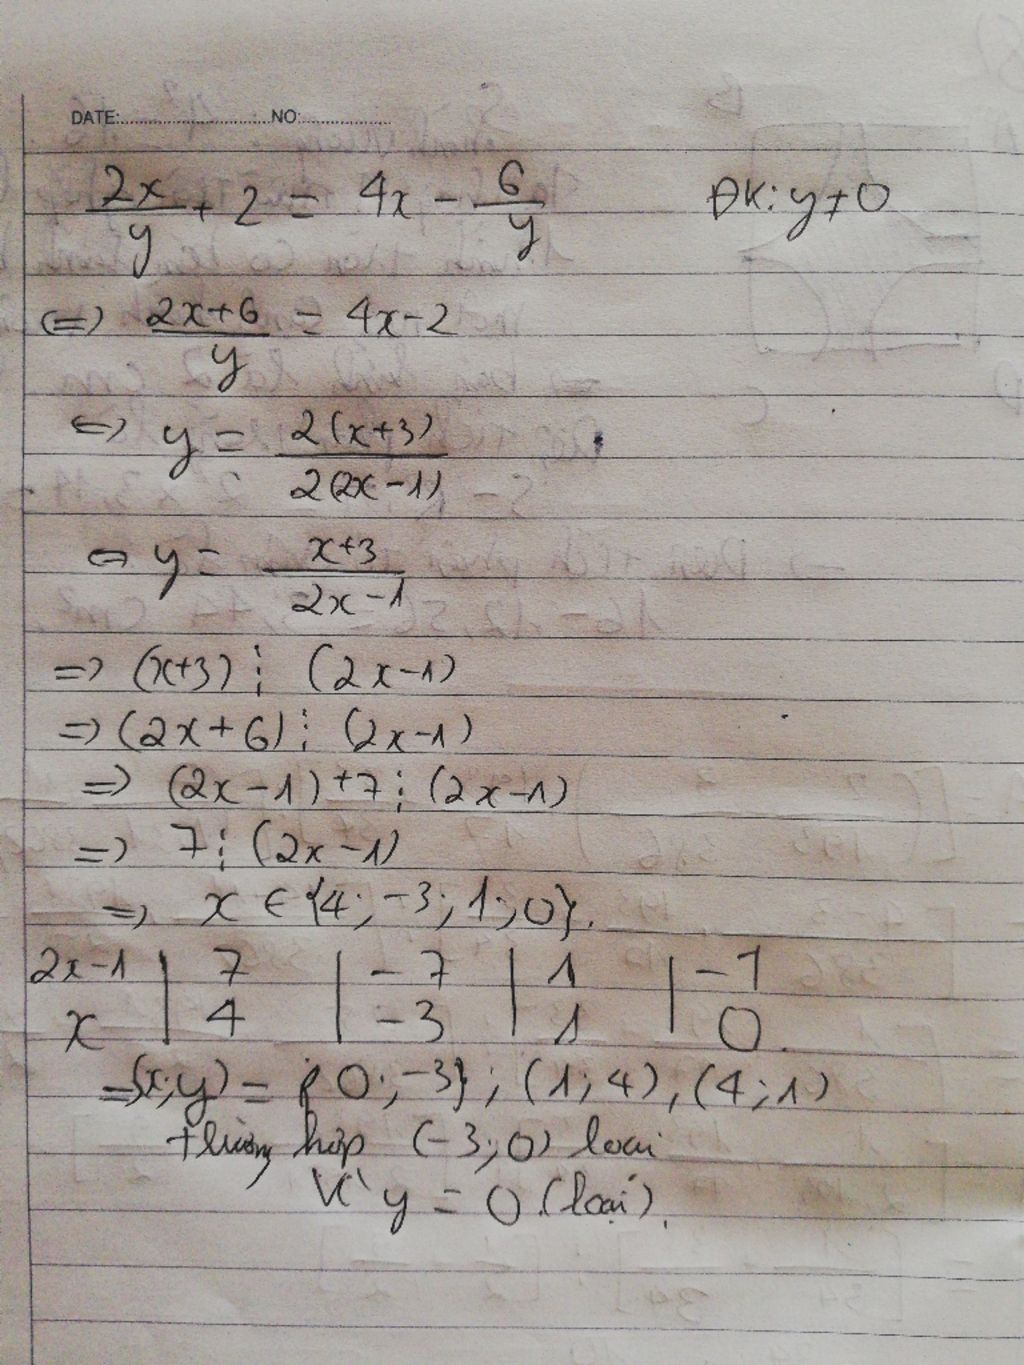 DATE:..............................NO:....................
2x/y + 2 = 4x - 6/y ĐK: y ≠ 0
(=) (2x+6)/y = 4x-2
<=> y = 2(x+3)/2(2x-1)
<=> y = (x+3)/(2x-1)
=> (x+3) ⋮ (2x-1)
=> (2x+6) ⋮ (2x-1)
=> (2x-1)+7 ⋮ (2x-1)
=> 7 ⋮ (2x-1)
=> x ∈ {4; -3; 1; 0}.
2x-1 | 7 | -7 | 1 | -1
x | 4 | -3 | 1 | 0.
=> (x;y) = {0; -3}; (1; 4), (4; 1)
trường hợp (-3; 0) loại
Vì y = 0 (loại).